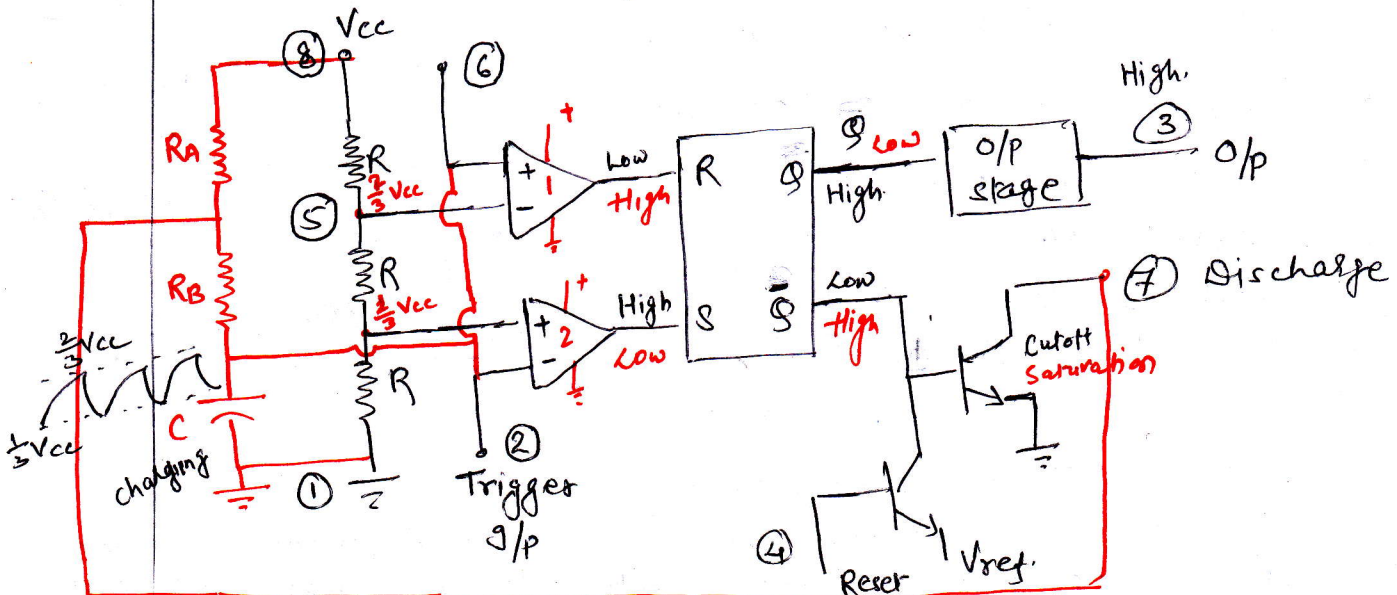 8 Vcc
6
High.
3
O/p
RA
R
2/3 Vcc
5
+
+
1
-
Low
High
R
Q
Q Low
High.
O/P
stage
RB
R
1/3 Vcc
+
+
2
-
High
Low
S
Q̅
Low
High
7 Discharge
Cutoff
Saturation
2/3 Vcc
1/3 Vcc
C
charging
R
1
2
Trigger
I/p
4
Reset
Vref.